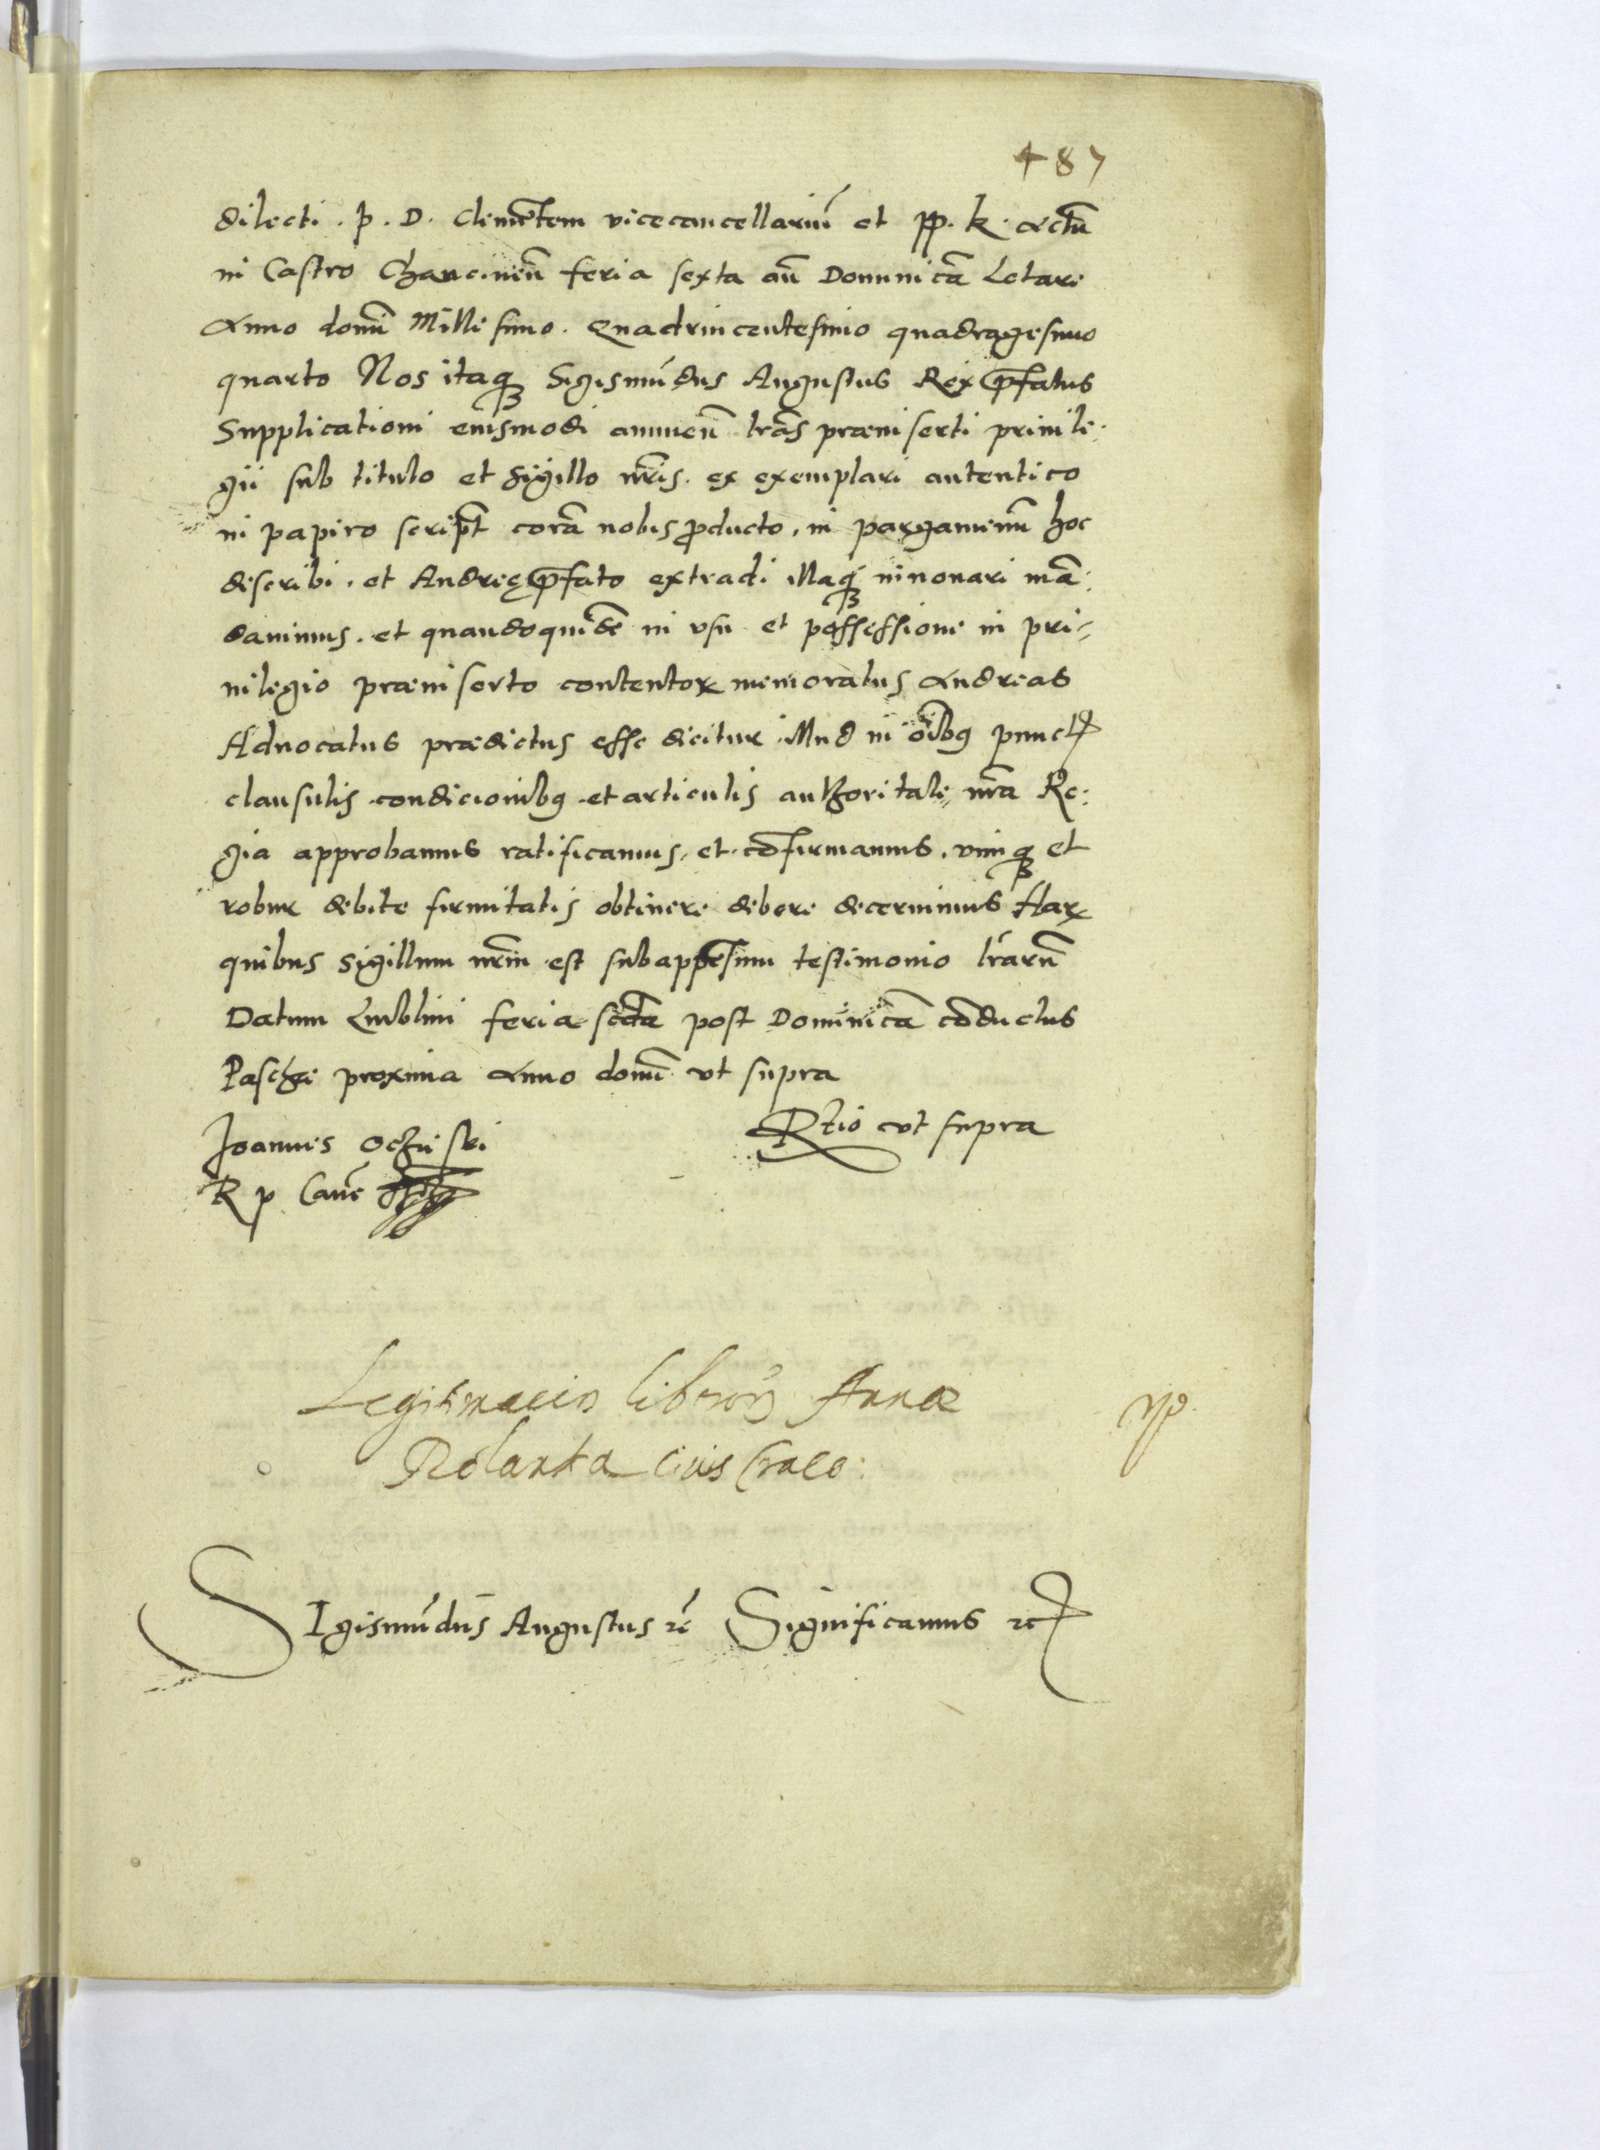 487
dilecti . p . D . Clemẽtem vicecancellariũ et pp. k. Actũ
in Castro Chancineñ feria sexta añ Dominicã Letare
Anno domĩ Millesimo . Quadrincentesimo quadragesimo
quarto Nos itaqꝫ Sigismũdus Augustus Rex p̃fatus
Supplicationi eiusmodi annueñ lr̃as præinserti priuile-
gii sub titulo et sigillo nr̃is. ex exemplari autentico
in papiro script̃ corã nobis ꝓducto, in pargamenũ hoc
describi . et Andreę p̃fato extradi illaqꝫ innouari mã-
dauimus . et quandoquidẽ in vsu et possessione in pri-
uilegio præinserto contentoꝝ memoratus Andreas
Aduocatus prædictus esse dicitur. Illud in oĩbꝯ punctꝭ
clausulis . condicionibꝯ . et articulis authoritate nr̃a Re-
gia approbamus ratificamus, et . cõfirmamus . vimqꝫ et
robur debite firmitatis obtinere debere decernimus Haꝝ
quibus sigillum nr̃m est subappẽsum testimonio lr̃arũ
Datum Lublini feria scdã post Dominicã cõductus
Paschæ proxima Anno domĩ vt supra
Joannes Oczieski
Rtio vt supra
R p Canc̃
Legitimacio liberoꝝ Annæ
Rolanka ciuis Craco:
Sigismũdus Augustus ꝛc̃ Significamus ꝛcꝭ